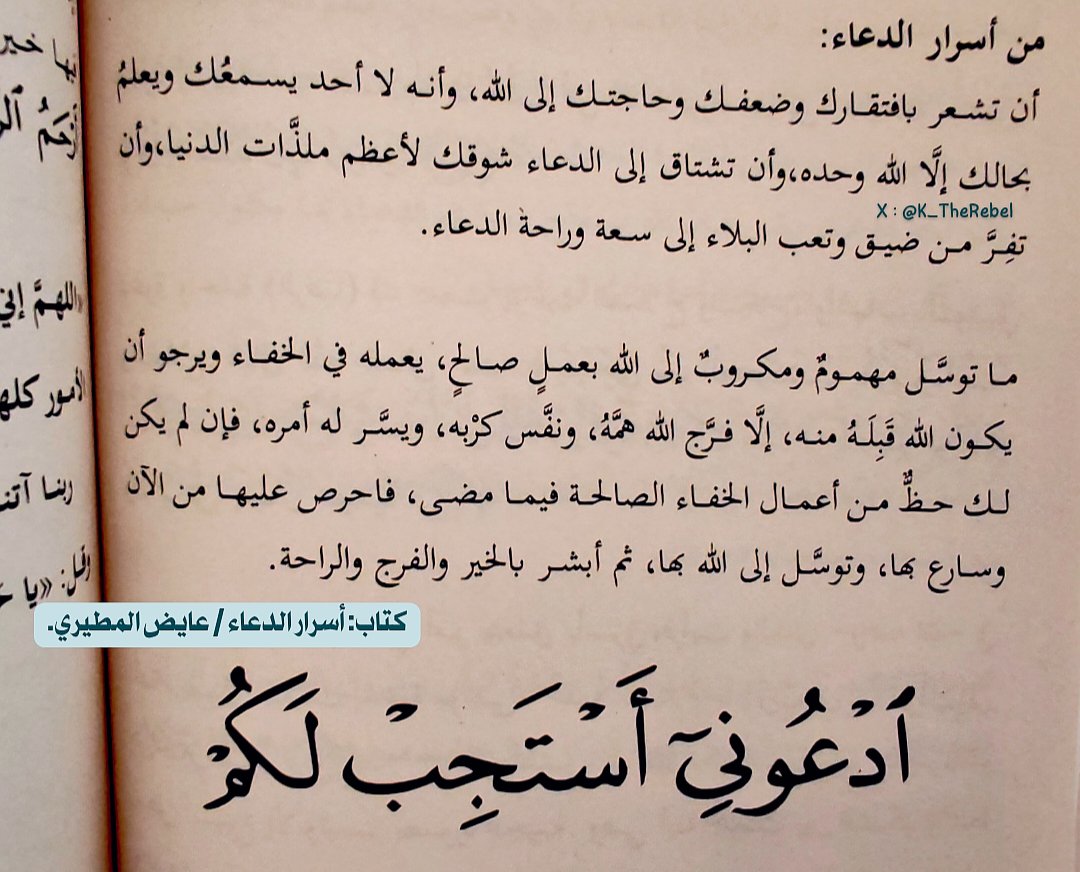 من أسرار الدعاء:
أن تشعر بافتقارك وضعفك وحاجتك إلى الله، وأنه لا أحد يسمعُك ويعلمُ
بحالك إلَّا الله وحده،وأن تشتاق إلى الدعاء شوقك لأعظم ملذَّات الدنيا،وأن
X : @K_TheRebel
تفِرَّ من ضيق وتعب البلاء إلى سعة وراحة الدعاء.
ما توسَّل مهمومٌ ومكروبٌ إلى الله بعملٍ صالحٍ، يعمله في الخفاء ويرجو أن
يكون الله قَبِلَهُ منه، إلَّا فرَّج الله همَّهُ، ونفَّس كرْبه، ويسَّر له أمره، فإن لم يكن
لك حظٌّ من أعمال الخفاء الصالحة فيما مضى، فاحرص عليها من الآن
وسارع بها، وتوسَّل إلى الله بها، ثم أبشر بالخير والفرج والراحة.
كتاب: أسرار الدعاء / عايض المطيري.
ٱدْعُونِيٓ أَسْتَجِبْ لَكُمْ
بها خير
أَرْحَمُ
«اللهمَّ إني
الأمور كلها
ربنا آتنا
وقل: «يا